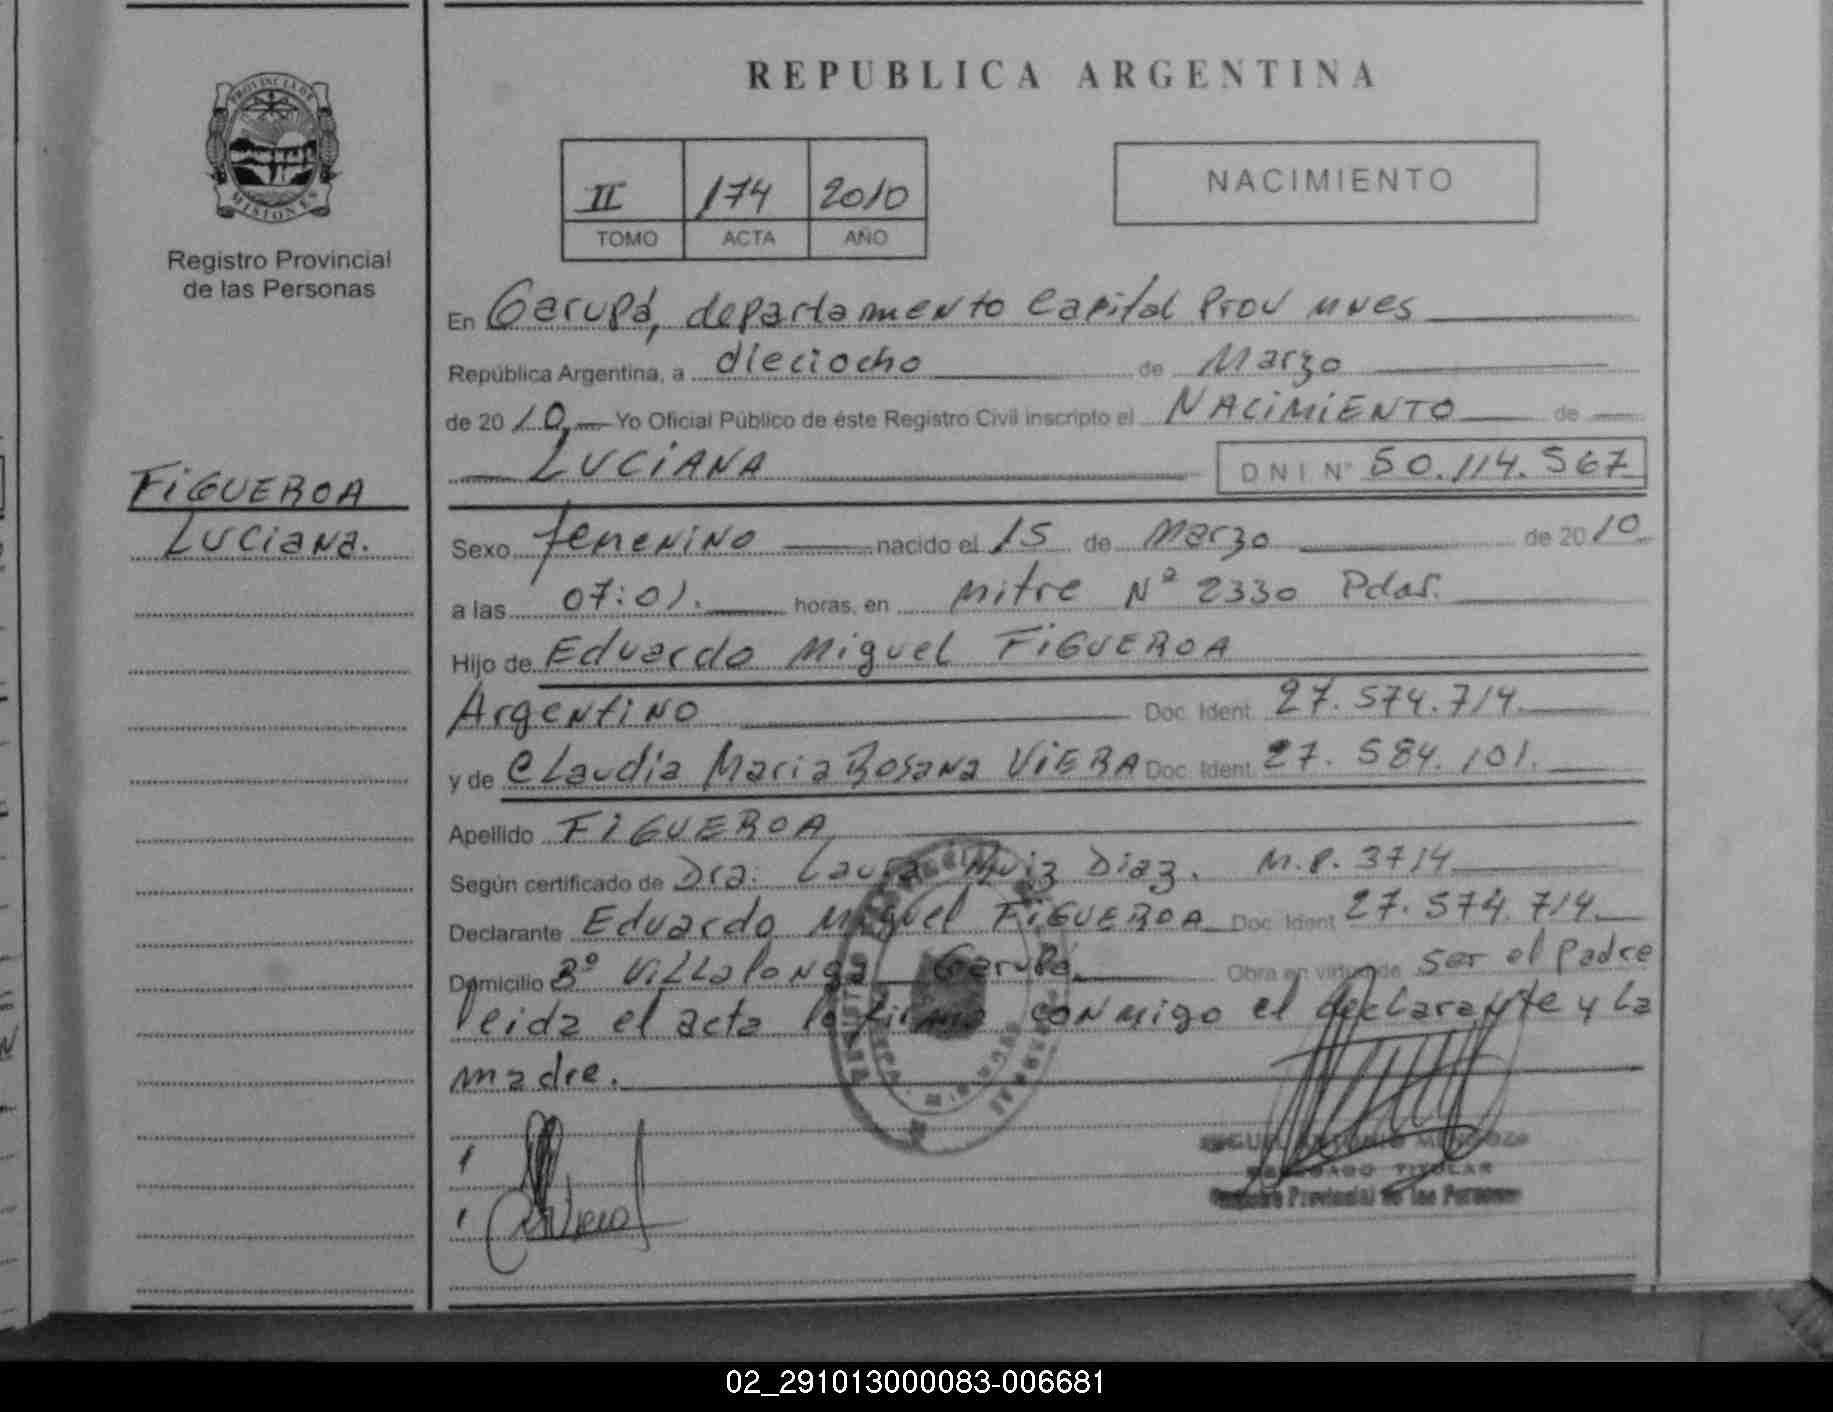 REPUBLICA ARGENTINA
PROVINCIA DE
MISIONES
Registro Provincial
de las Personas
II 174 2010
TOMO ACTA AÑO
NACIMIENTO
FIGUEROA
LUCIANA.
En Garupá, departamento Capital Prov Mnes
República Argentina, a dieciocho de Marzo
de 2010, Yo Oficial Público de éste Registro Civil inscripto el NACIMIENTO de
LUCIANA DNI Nº 50.114.567
Sexo femenino nacido el 15 de Marzo de 2010
a las 07:01. horas, en Mitre Nº 2330 Pdas.
Hijo de Eduardo Miguel FIGUEROA
Argentino Doc. Ident. 27.574.714.
y de Claudia Maria Rosana VIERA Doc. Ident. 27.584.101.
Apellido FIGUEROA
Según certificado de Dra. Laura Muiz Diaz. M.P. 3714
Declarante Eduardo Miguel FIGUEROA Doc. Ident. 27.574.714.
Domicilio Bº Villalonga Garupá. Obra en virtud de ser el padre
leida el acta la firma conmigo el declarante y la
madre.
MIGUEL ANTONIO MENDOZA
DELEGADO TITULAR
Registro Provincial de las Personas
02_291013000083-006681